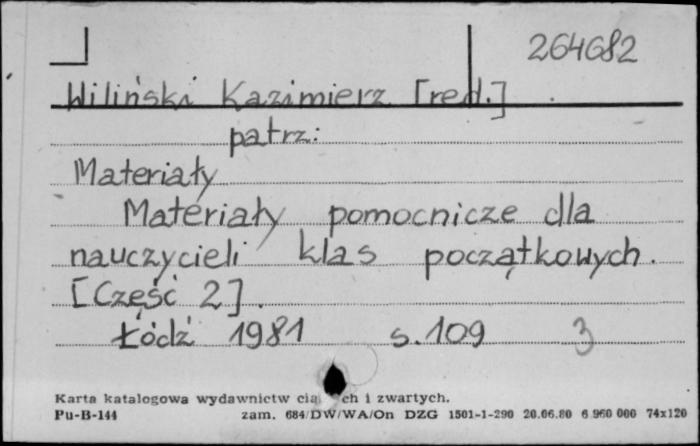 264682
Wiliński Kazimierz [red.]
patrz:
Materiały
Materiały pomocnicze dla
nauczycieli klas początkowych.
[Część 2].
Łódź 1981 s. 109 3
Karta katalogowa wydawnictw cią ch i zwartych.
Pu-B-144 zam. 684/DW/WA/On DZG 1501-1-290 20.06.80 6 960 000 74x120